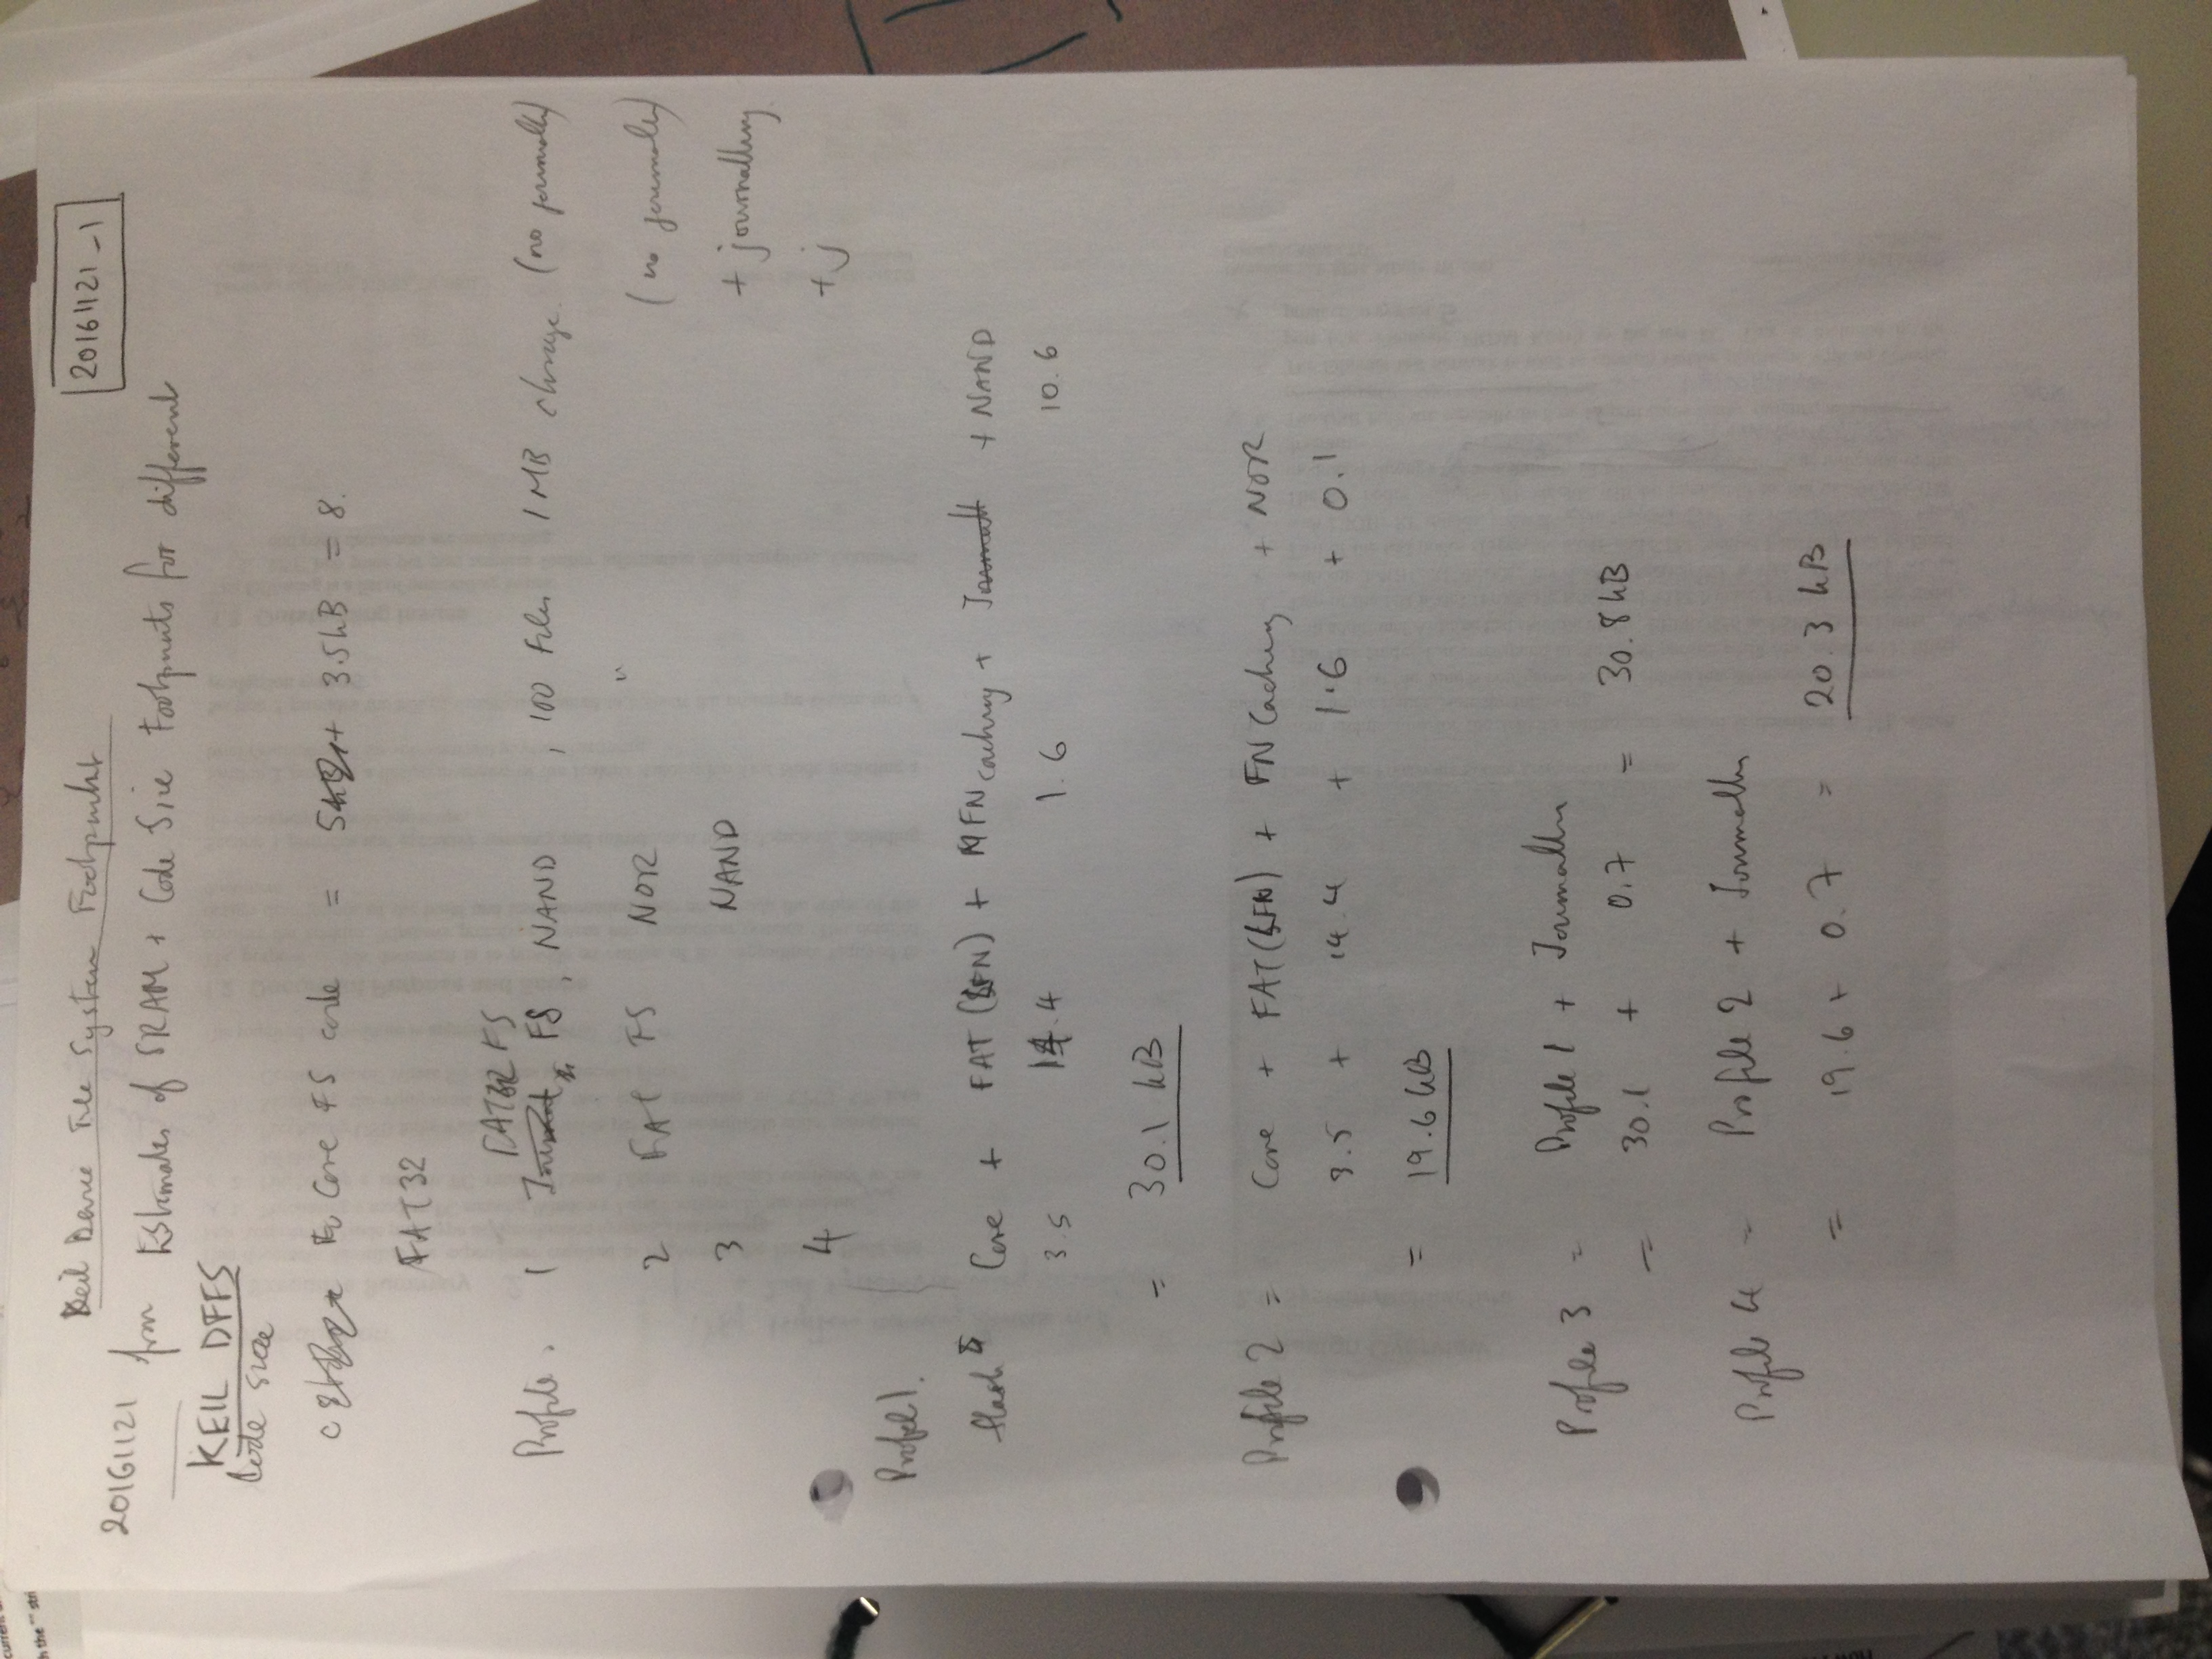 current
h the "" stri
Keil Device File System Footprint
20161121_1
20161121 from Estimates of SRAM + Code Size Footprints for different
KEIL DFFS
Code size
Core FS code = 5 + 3.5kB = 8.
FAT32
FAT32 FS
Profile. 1 Journal FS, NAND , 100 files 1MB storage (no journalling)
2 FAT FS NOR " (no journalling)
3 NAND + journalling
4 + j
Profile 1.
flash Core + FAT (LFN) + FN caching + Journall + NAND
3.5 14.4 1.6 10.6
= 30.1 kB
Profile 2 = Core + FAT (LFN) + FN Caching + NOR
3.5 + 14.4 + 1.6 + 0.1
= 19.6 kB
Profile 3 = Profile 1 + Journalling
= 30.1 + 0.7 = 30.8 kB
Profile 4 = Profile 2 + Journalling
= 19.6 + 0.7 = 20.3 kB